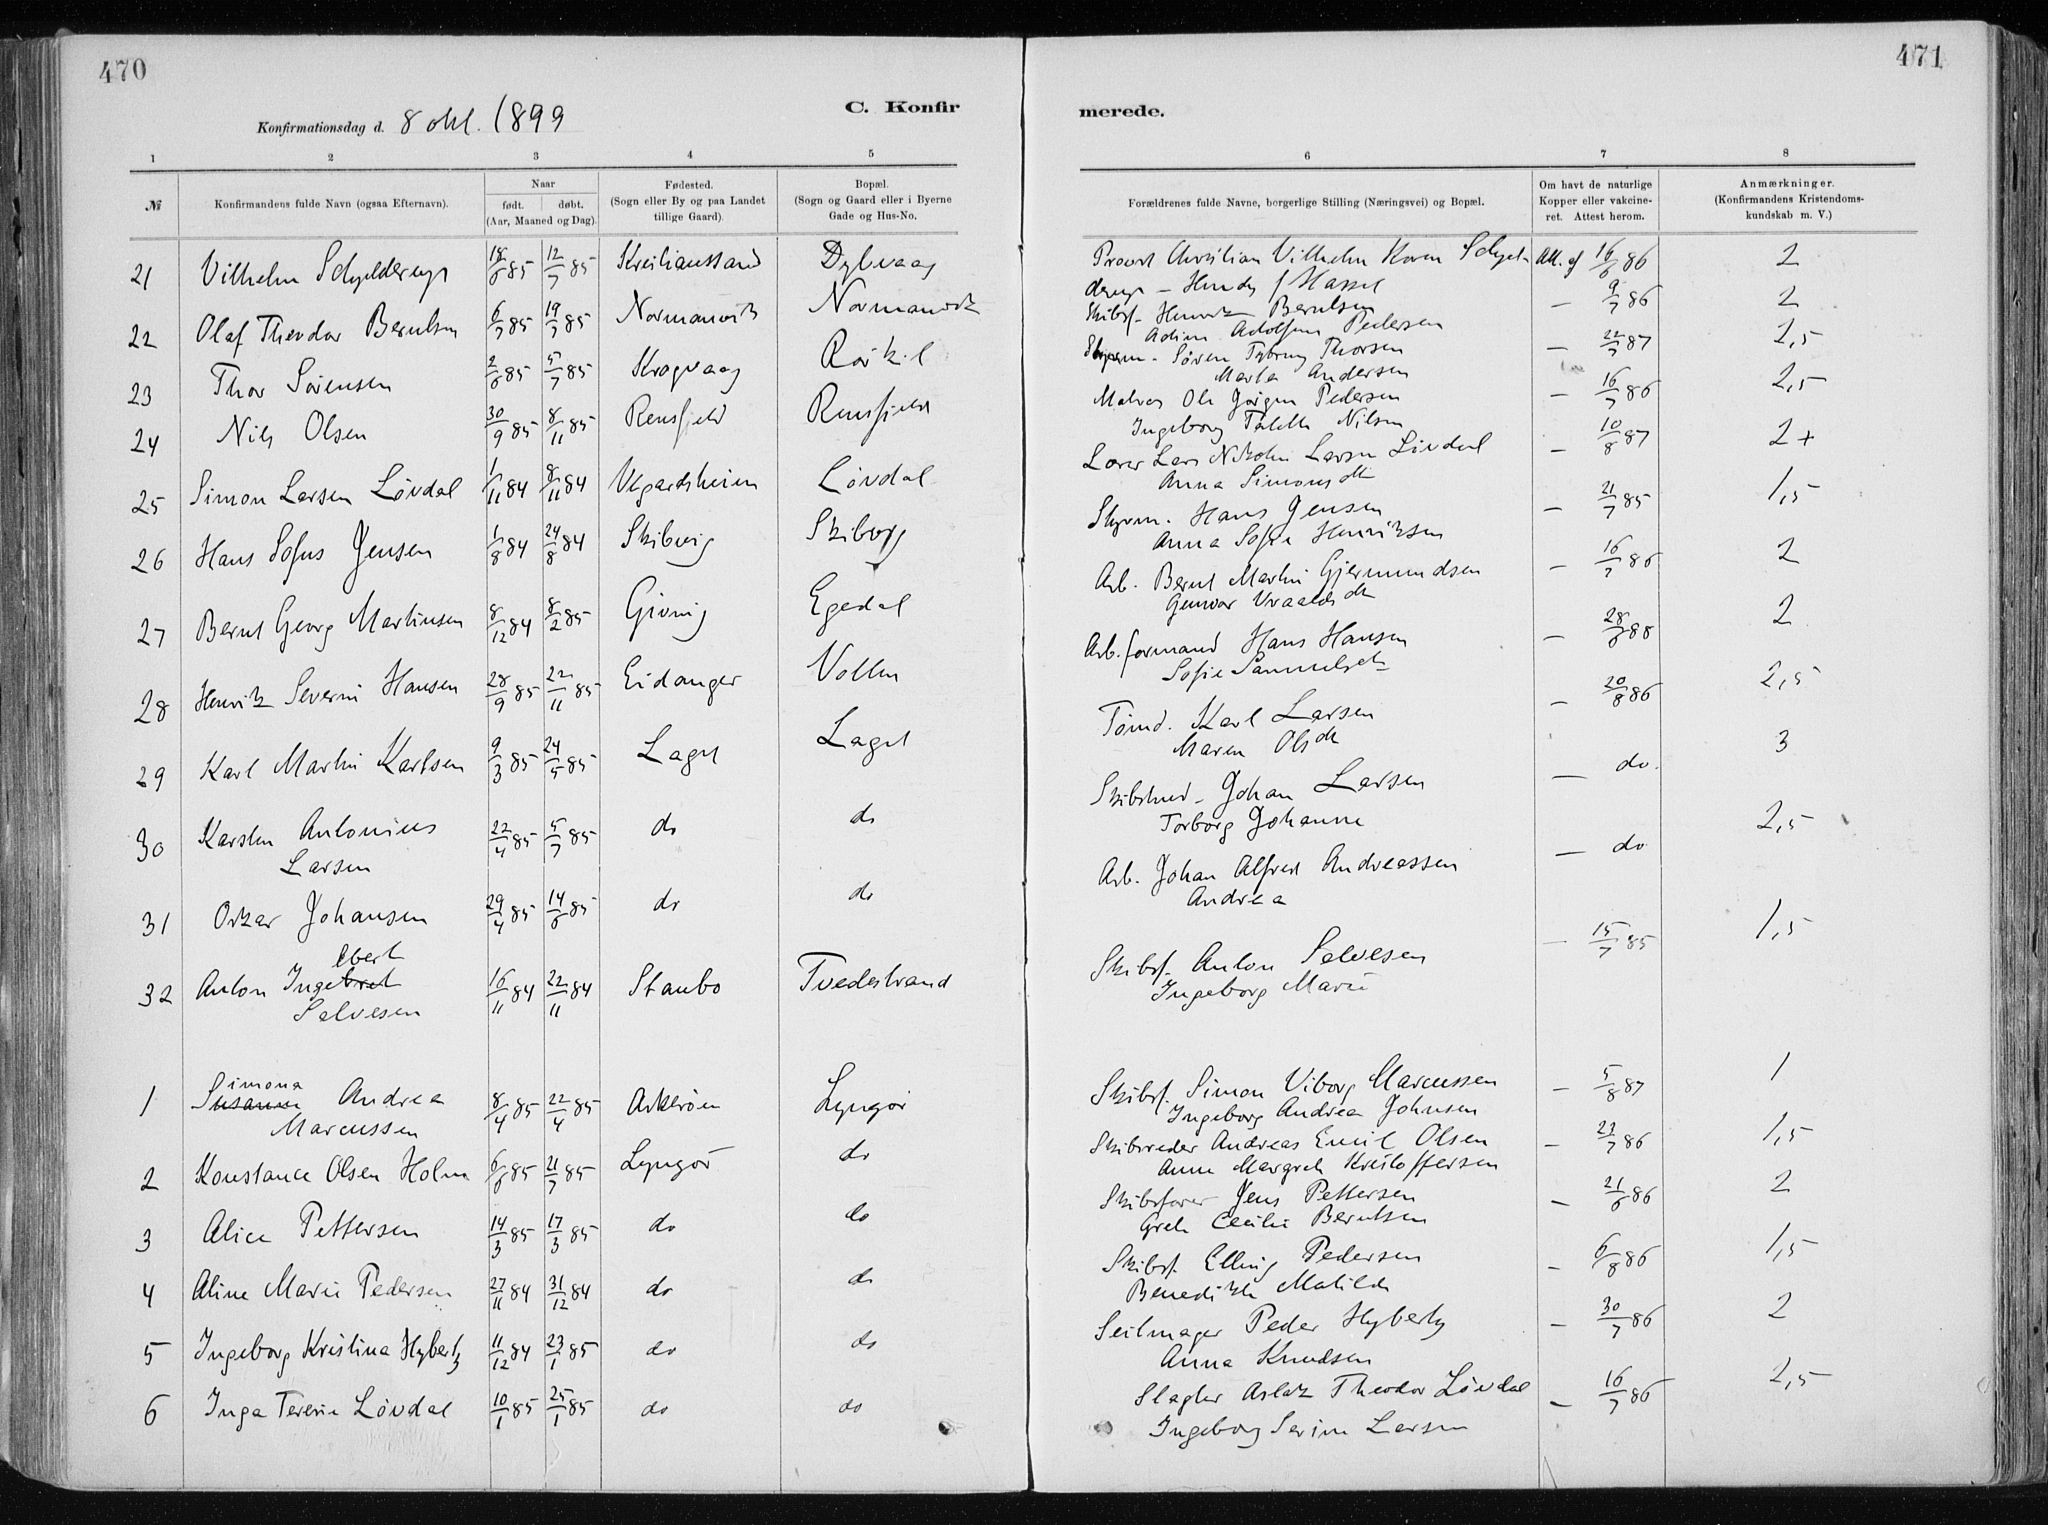 470
471
Konfirmationsdag d. 8 okt. 1899
C. Konfir
merede.
1 2 3 4 5 6 7 8
№ Konfirmandens fulde Navn (ogsaa Efternavn). Naar født. døbt. (Aar, Maaned og Dag). Fødested. (Sogn eller By og paa Landet tillige Gaard). Bopæl. (Sogn og Gaard eller i Byerne Gade og Hus-No. Forældrenes fulde Navne, borgerlige Stilling (Næringsvei) og Bopæl. Om havt de naturlige Kopper eller vakcineret. Attest herom. Anmærkninger. (Konfirmandens Kristendomskundskab m. V.)
21 Vilhelm Schjelderup 18/6 85 12/7 85 Kristianssand Dybvaag Provst Christian Vilhelm Koren Schjel- Att. af 16/6 86 2
derup - f Hassel
22 Olaf Theodor Berntsen 6/7 85 19/7 85 Normanvik Normanvik Skibsf. Henrik Berntsen — 9/7 86 2
Adolfine Pedersen
23 Thor Sörensen 2/6 85 5/7 85 Krogvaag Styrm. Sören Thorsen — 22/7 87 2,5
Andersen
24 Nils Olsen 30/9 85 8/11 85 Rensfjeld Rensfjeld Matros Ole Jörgen Pedersen — 16/7 86 2,5
Ingeborg Nilsen
25 Simon Larsen Lövdal 1/11 84 8/11 84 Vegardsheien Lövdal Lærer Lars Larsen Lövdal — 10/8 87 2+
Anna Simonsdtr
26 Hans Sofus Jensen 1/8 84 24/8 84 Skibvig Skiborg Styrm. Hans Jensen — 21/7 85 1,5
Anna Sofie Henriksen
27 Bernt Georg Martinsen 8/12 84 8/2 85 Givnig Egedal Arb. Bernt Martin Gjermundsen — 16/7 86 2
Gunvor
28 Henrik Severin Hansen 28/9 85 22/11 85 Eidanger Vollen Arb.formand Hans Hansen — 28/6 88 2
Sofie Samuelsdtr
29 Karl Martin Karlsen 9/3 85 24/5 85 Laget Laget Tömd. Karl Larsen — 20/8 86 2,5
Maren Olsdtr
30 Karsten Antonius 22/4 85 5/7 85 do do Skibstmd. Johan Larsen — do. 3
Larsen Torborg Johanne
31 Oskar Johansen 29/4 85 14/6 85 do do Arb. Johan Alfred Andreassen — do 2,5
Andrea
ebert
32 Anton Ingebret 16/11 84 22/11 84 Staubo Tvedestrand Skibsf. Anton Selvesen — 15/7 85 1,5
Selvesen Ingeborg Marie
imona
1 Susanne Andrea 8/4 85 22/4 85 Askerøen Lyngør Skibsf. Simon Viborg Marcussen — 5/8 87 1
Marcussen Ingeborg Andrea Johnsen
2 Konstance Olsen Holm 6/6 85 21/7 85 Lyngör do Skibsreder Andreas Emil Olsen — 22/7 86 1,5
Anne Margreth Kristoffersen
3 Alice Pettersen 14/3 85 17/3 85 do do Skibsfører Jens Pettersen — 21/6 86 2
Grete Cecilie Berntsen
4 Aline Marie Pedersen 27/11 84 31/12 84 do do Skibsf. Elling Pedersen — 6/8 86 1,5
Benedikte Matilde
5 Ingeborg Kristina Hybertz 11/12 84 23/1 85 do do Seilmager Peder Hybertz — 30/7 86 2
Anna Knudsen
6 Inga Terese Lövdal 10/1 85 25/1 85 do do Slagter Aslak Theodor Lövdal — 16/7 86 2,5
Ingeborg Serine Larsen